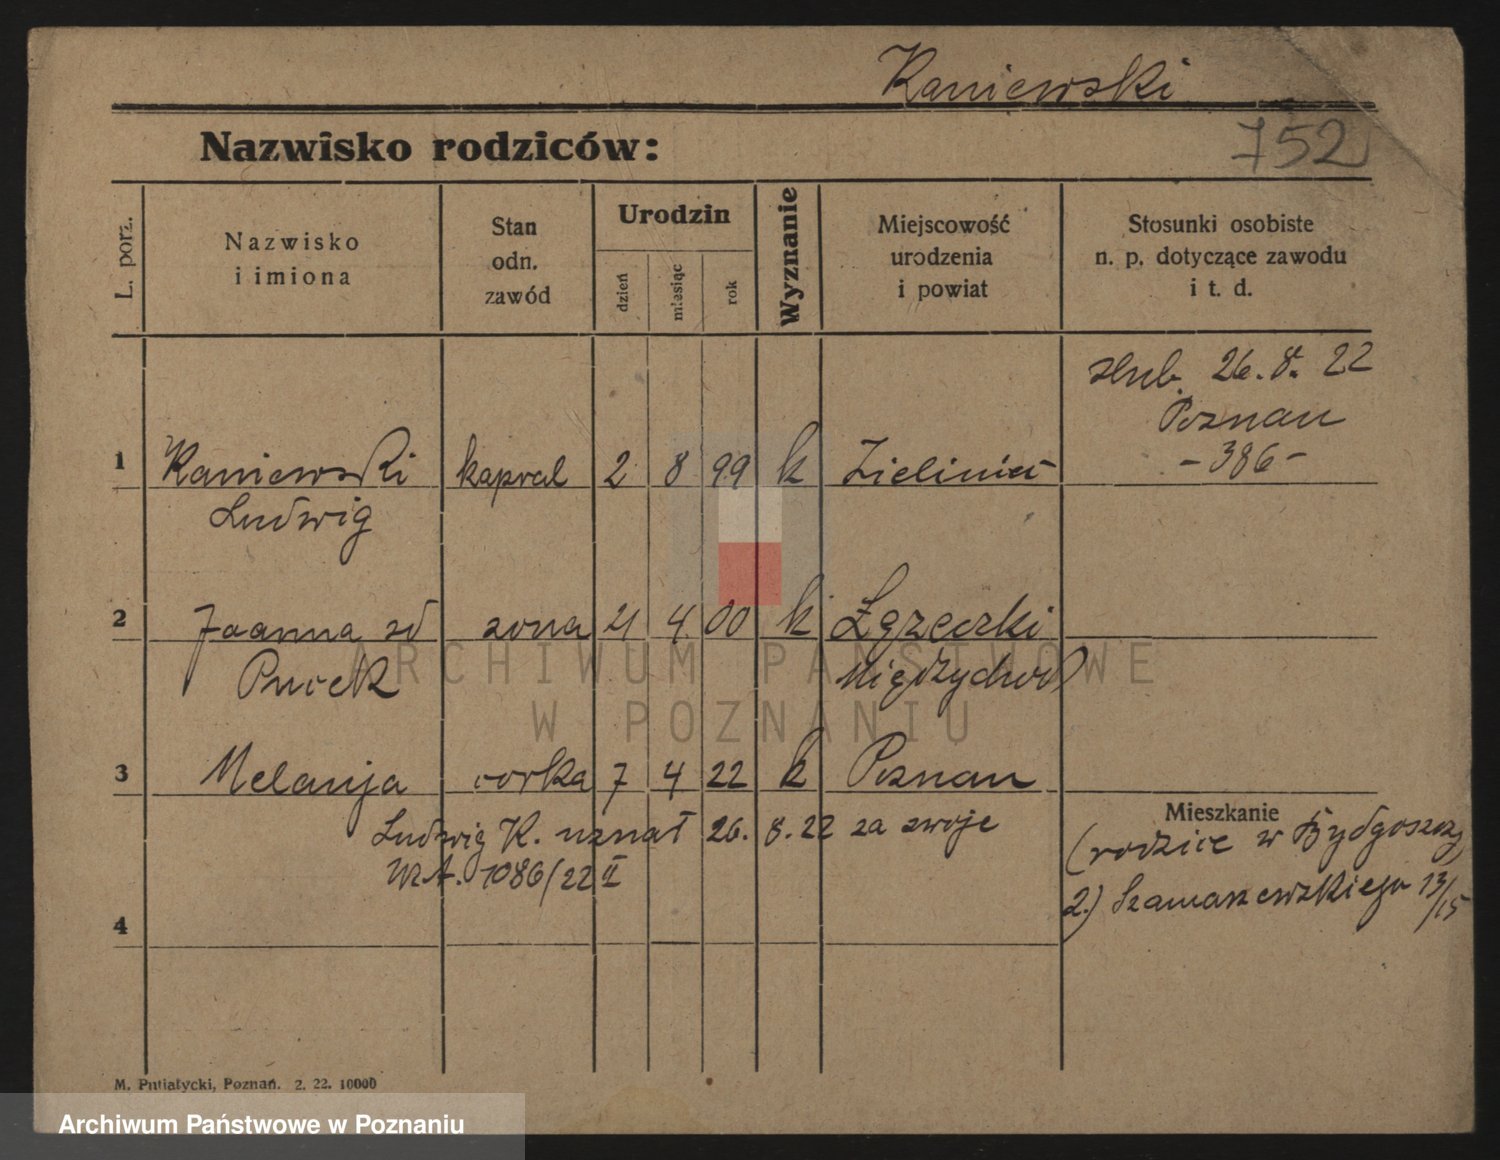 Kaniewski
752
Nazwisko rodziców:
L. porz.
Nazwisko
i imiona
Stan
odn.
zawód
Urodzin
dzień
miesiąc
rok
Wyznanie
Miejscowość
urodzenia
i powiat
Stosunki osobiste
n. p. dotyczące zawodu
i t. d.
ślub. 26. 8. 22
Poznan
-386-
1 Kaniewski kapral 2 8 99 k
Ludwig
2 Joanna zd zona 21 4 00 k
Międzychod
3 Melanja corka 7 4 22 k Poznan
Mieszkanie
Ludwig K. uznał 26. 8. 22 za swoje
1086/22 II
(rodzice w Bydgoszczy
2.) Szamarzewskiego 13/15
4
M. Putiatycki, Poznań. 2. 22. 10000
ARCHIWUM PAŃSTWOWE
W POZNANIU
Archiwum Państwowe w Poznaniu